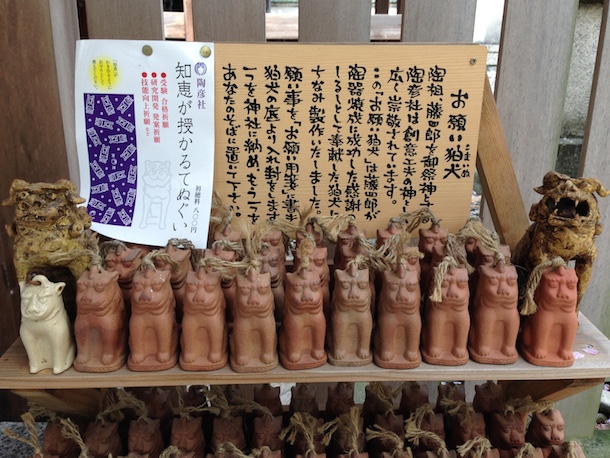 お願い狛犬
こまいぬ
陶祖 藤四郎を御祭神とする
陶彦社は創意工夫の神と
広く崇敬されています。
この「お願い狛犬」は藤四郎が
陶器焼成に成功した感謝の
しるしとして奉献した狛犬に
ちなみ製作いたしました。
願い事を「お願い用紙」に書き
狛犬の底より入れ封をします
一つを神社に納め、もう一つを
あなたのそばに置いて下さい。
陶彦社
知恵が授かるてぬぐい
初穂料 八〇〇円
●受験 合格祈願
●研究開発 発案祈願
●技能向上祈願 など